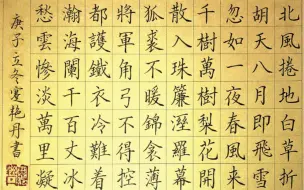 北風捲地白草折
胡天八月即飛雪
忽如一夜春風來
千樹萬樹梨花開
散入珠簾溼羅幕
狐裘不暖錦衾薄
將軍角弓不得控
都護鐵衣冷難着
瀚海闌干百丈冰
愁雲慘淡萬里凝
庚子立冬凌艳丹書